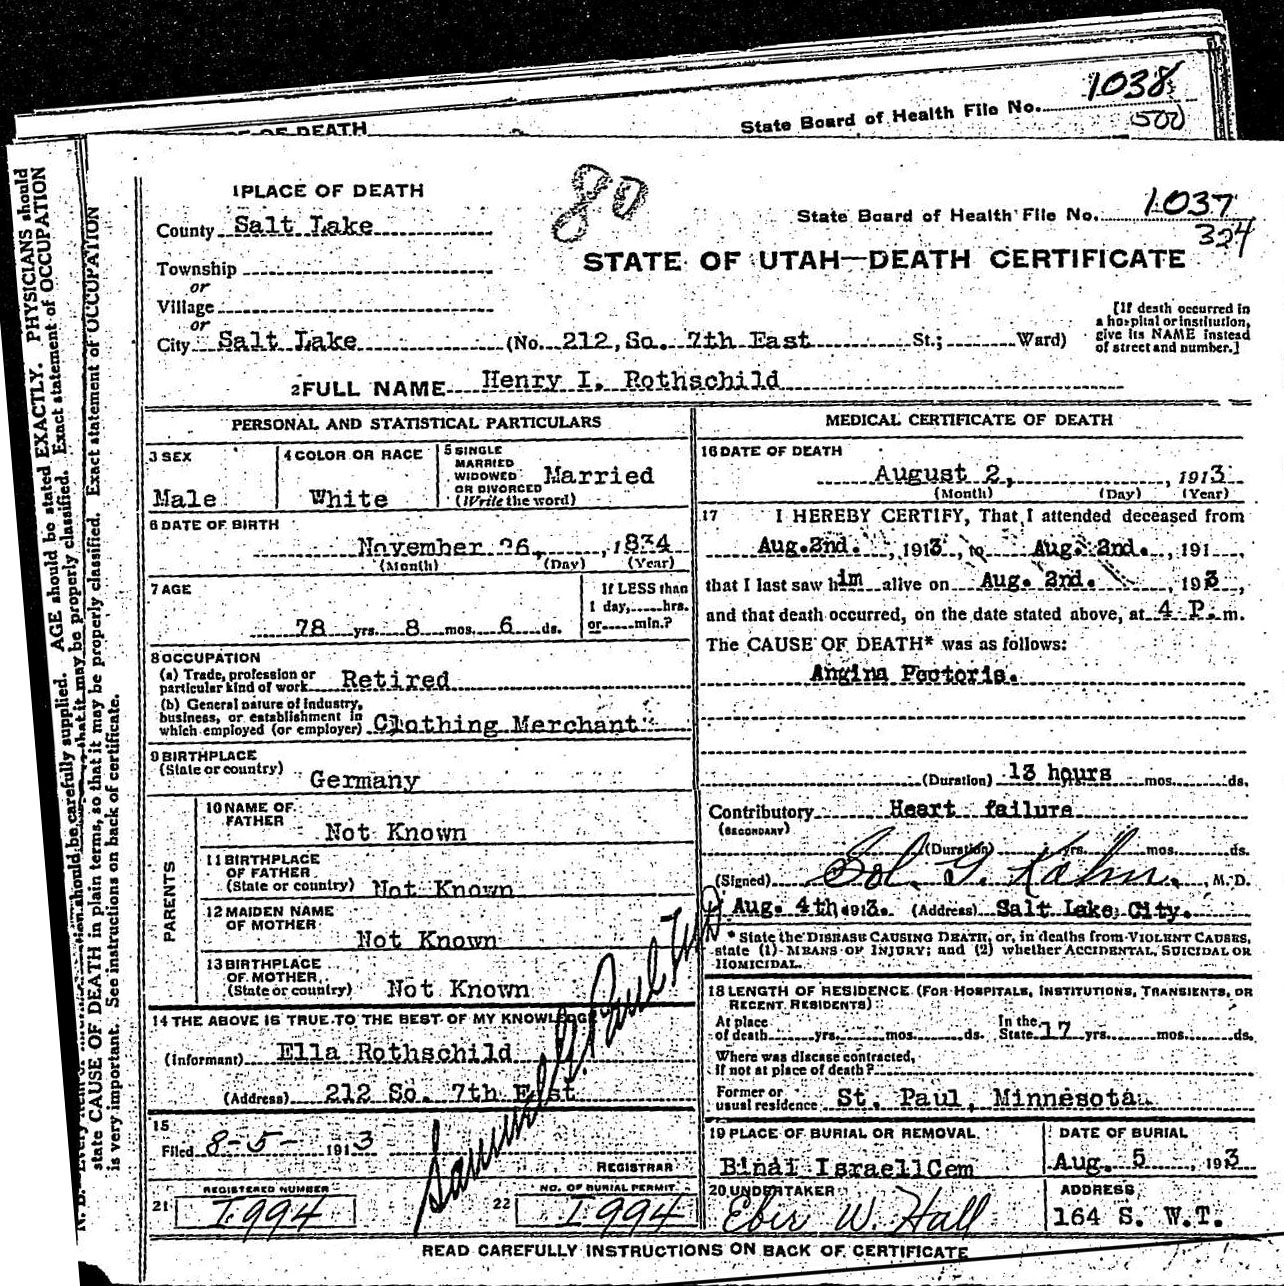 1038
500
State Board of Health File No.
OF DEATH
80
1037
324
State Board of Health File No.
STATE OF UTAH—DEATH CERTIFICATE
1 PLACE OF DEATH
County Salt Lake
Township
or
Village
or
City Salt Lake (No. 212, So. 7th East St.; Ward)
[If death occurred in
a hospital or institution,
give its NAME instead
of street and number.]
2 FULL NAME Henry I. Rothschild
PERSONAL AND STATISTICAL PARTICULARS
3 SEX
Male
4 COLOR OR RACE
White
5 SINGLE
MARRIED
WIDOWED
OR DIVORCED
(Write the word)
Married
6 DATE OF BIRTH
November 26, , 1834
(Month) (Day) (Year)
7 AGE
78 yrs. 8 mos. 6 ds.
If LESS than
1 day, hrs.
or min.?
8 OCCUPATION
(a) Trade, profession or
particular kind of work Retired
(b) General nature of industry,
business, or establishment in
which employed (or employer) Clothing Merchant
9 BIRTHPLACE
(State or country) Germany
PARENTS
10 NAME OF
FATHER Not Known
11 BIRTHPLACE
OF FATHER
(State or country) Not Known
12 MAIDEN NAME
OF MOTHER
Not Known
13 BIRTHPLACE
OF MOTHER
(State or country) Not Known
14 THE ABOVE IS TRUE TO THE BEST OF MY KNOWLEDGE
(Informant) Ella Rothschild
(Address) 212 So. 7th East
15
Filed 8-5- 1913
REGISTRAR
21 REGISTERED NUMBER
1994
22 NO. OF BURIAL PERMIT
1994
MEDICAL CERTIFICATE OF DEATH
16 DATE OF DEATH
August 2, , 1913
(Month) (Day) (Year)
17 I HEREBY CERTIFY, That I attended deceased from
Aug. 2nd. , 1913, to Aug. 2nd. , 191 ,
that I last saw him alive on Aug. 2nd. , 1913,
and that death occurred, on the date stated above, at 4 P. m.
The CAUSE OF DEATH* was as follows:
Angina Pectoris.
(Duration) 13 hours mos. ds.
Contributory Heart failure
(SECONDARY)
(Duration) yrs. mos. ds.
(Signed) Sol. G. Kahn. , M. D.
Aug. 4th 1913. (Address) Salt Lake City.
* State the DISEASE CAUSING DEATH, or, in deaths from VIOLENT CAUSES,
state (1) MEANS OF INJURY; and (2) whether ACCIDENTAL, SUICIDAL OR
HOMICIDAL.
18 LENGTH OF RESIDENCE (FOR HOSPITALS, INSTITUTIONS, TRANSIENTS, OR
RECENT RESIDENTS)
At place
of death yrs. mos. ds.
In the
State 17 yrs. mos. ds.
Where was disease contracted,
If not at place of death?
Former or
usual residence St. Paul, Minnesota
19 PLACE OF BURIAL OR REMOVAL
Binai Israell Cem
DATE OF BURIAL
Aug. 5 , 1913
20 UNDERTAKER
Eber W. Hall
ADDRESS
164 S. W.T.
READ CAREFULLY INSTRUCTIONS ON BACK OF CERTIFICATE
carefully supplied. AGE should be stated EXACTLY. PHYSICIANS should
state CAUSE OF DEATH in plain terms, so that it may be properly classified. Exact statement of OCCUPATION
is very important. See instructions on back of certificate.